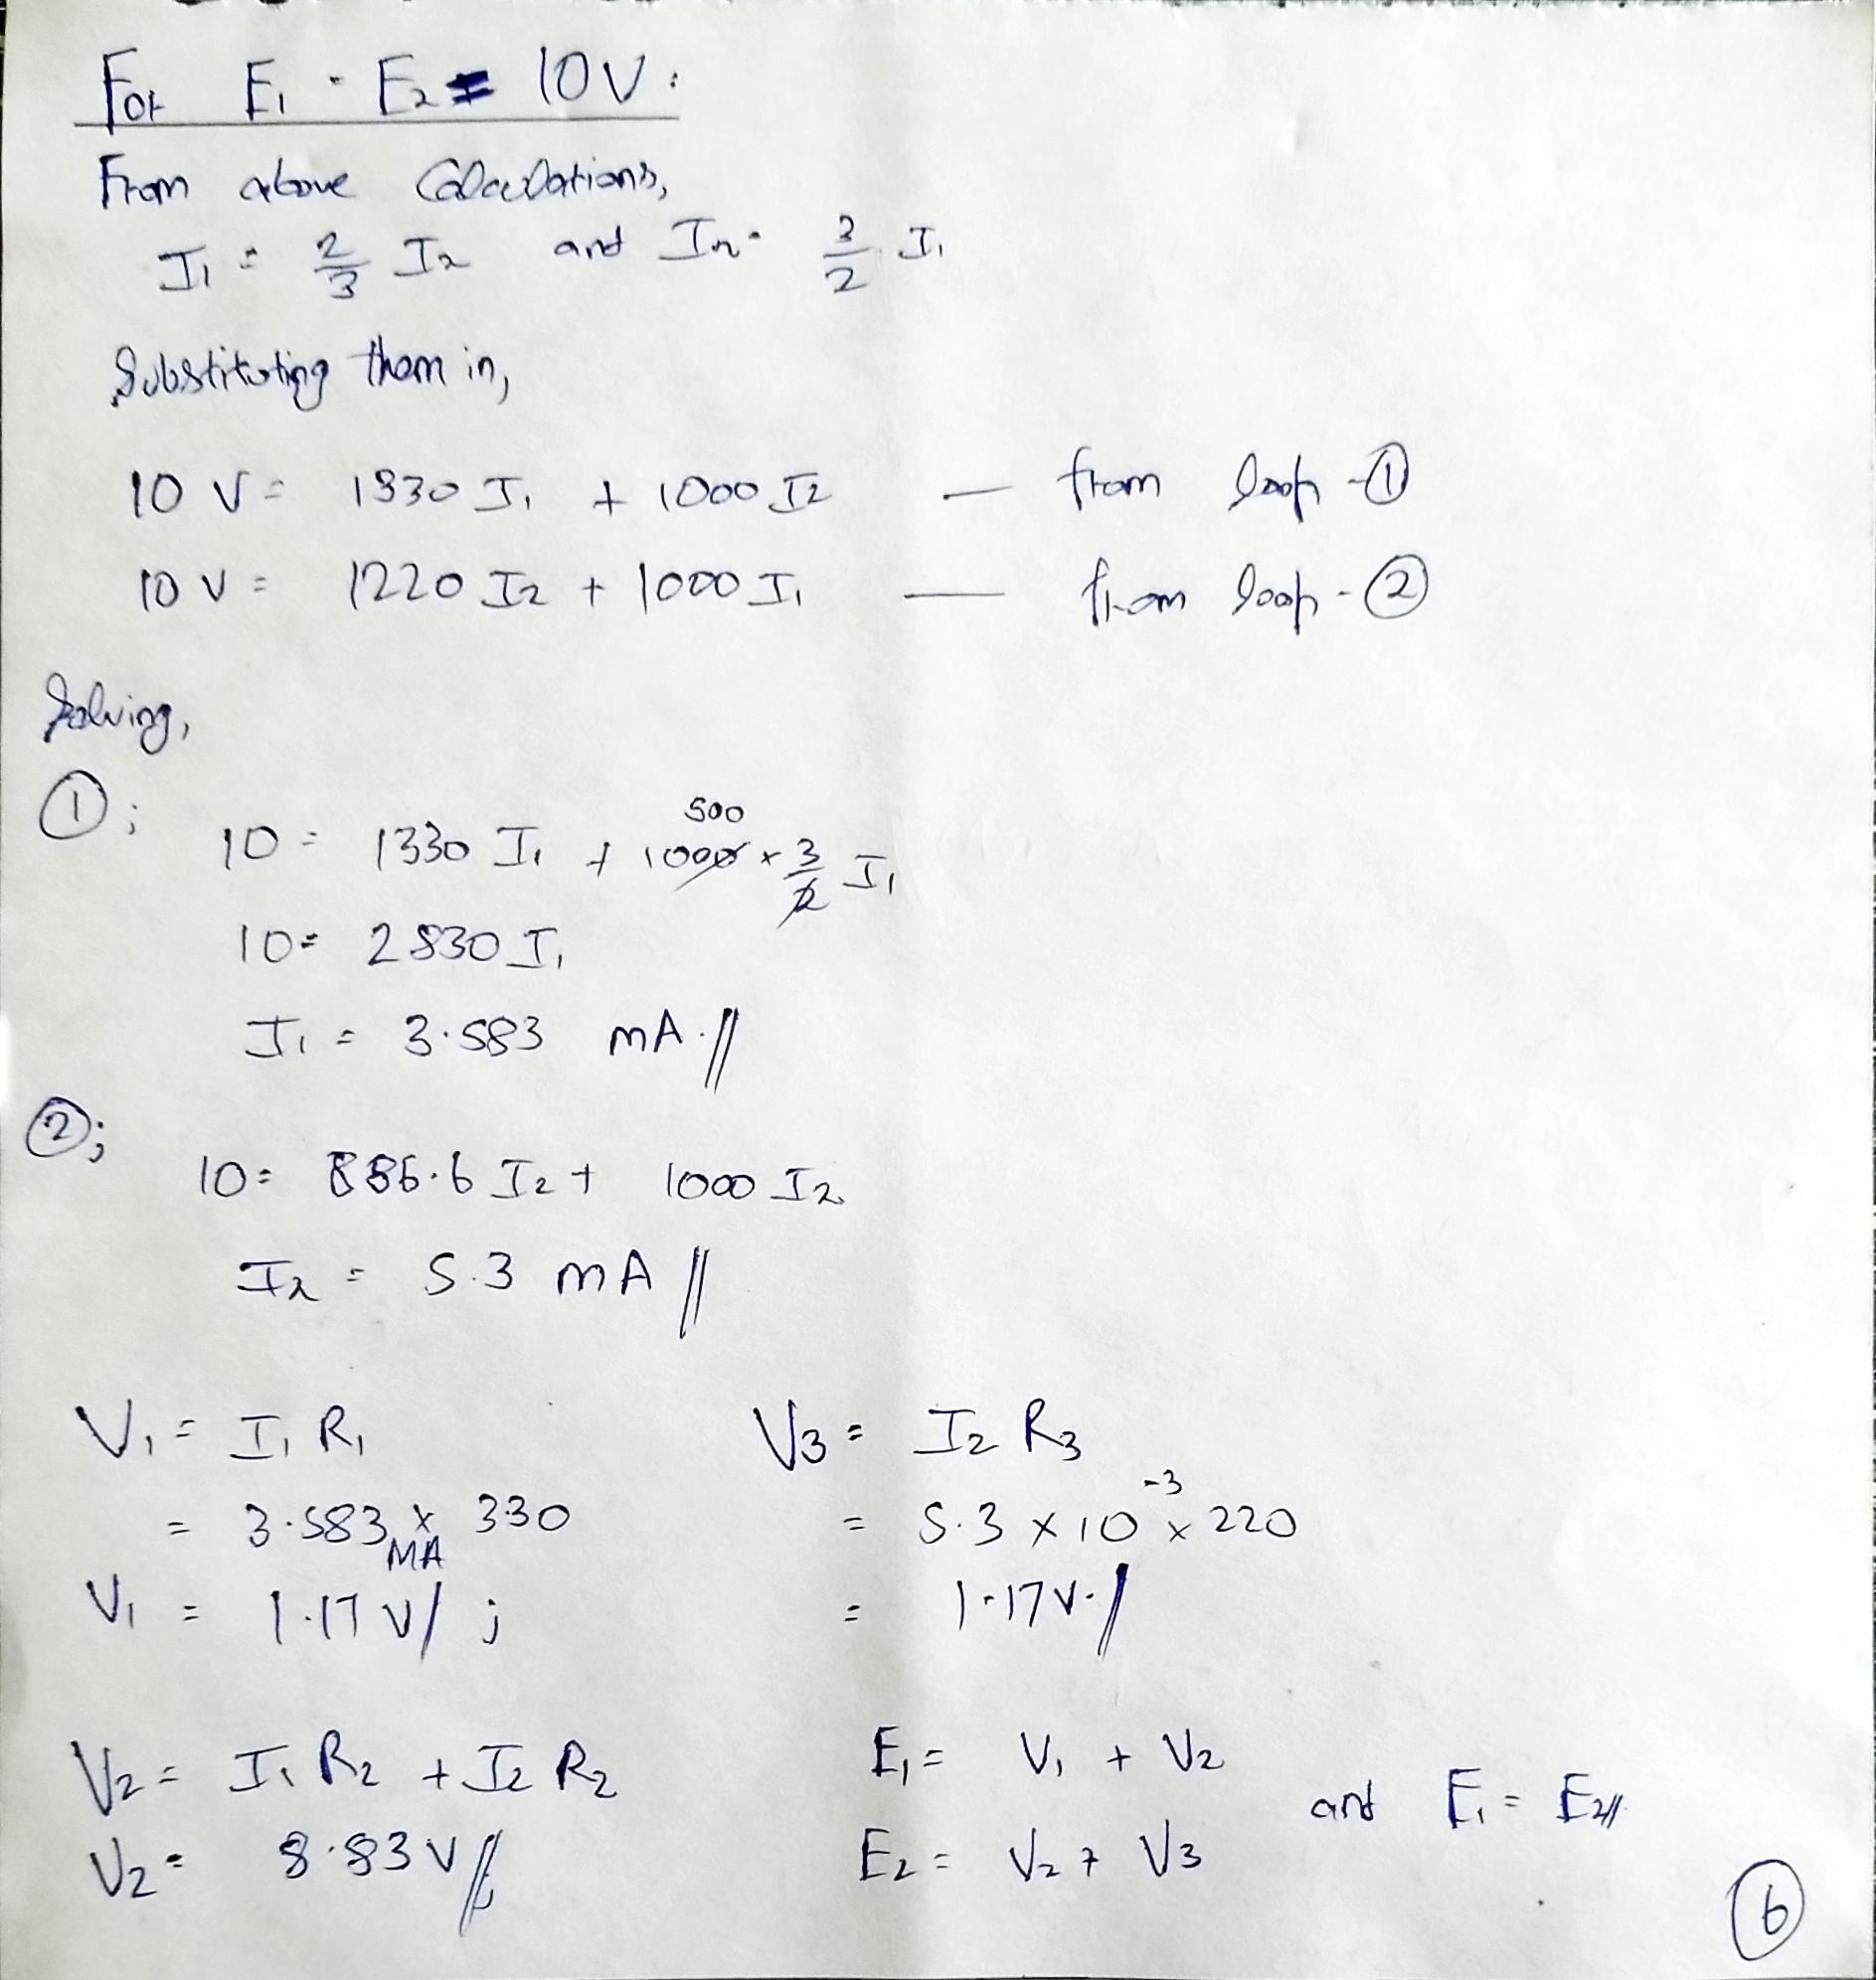 For E₁ = E₂ = 10V:
From above Calculations,
I₁ = 2/3 I₂ and I₂ = 3/2 I₁
Substituting them in,
10 V = 1330 I₁ + 1000 I₂ — from loop - ①
10 V = 1220 I₂ + 1000 I₁ — from loop - ②
Solving,
①;
500
10 = 1330 I₁ + 1000 × 3/2 I₁
10 = 2830 I₁
I₁ = 3.583 mA.//
②;
10 = 886.6 I₂ + 1000 I₂
I₂ = 5.3 mA //
V₁ = I₁ R₁
= 3.583 mA × 330
V₁ = 1.17 V/ ;
V₃ = I₂ R₃
= 5.3 × 10⁻³ × 220
= 1.17 V.//
V₂ = I₁ R₂ + I₂ R₂
V₂ = 8.83 V //
E₁ = V₁ + V₂
E₂ = V₂ + V₃
and E₁ = E₂//.
⑥